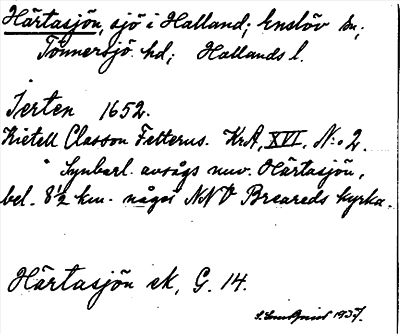 Härtasjön, sjö i Halland; Enslöv sn;
Tönnersjö hd; Hallands l.
Jerten 1652.
Kietell Classon Felterus. KrA, XVI, N:o 2.
Synbarl. avsågs nuv. Härtasjön,
bel. 8½ km. något NNV Breareds kyrka.
Härtasjön ek, G. 14.
1937.